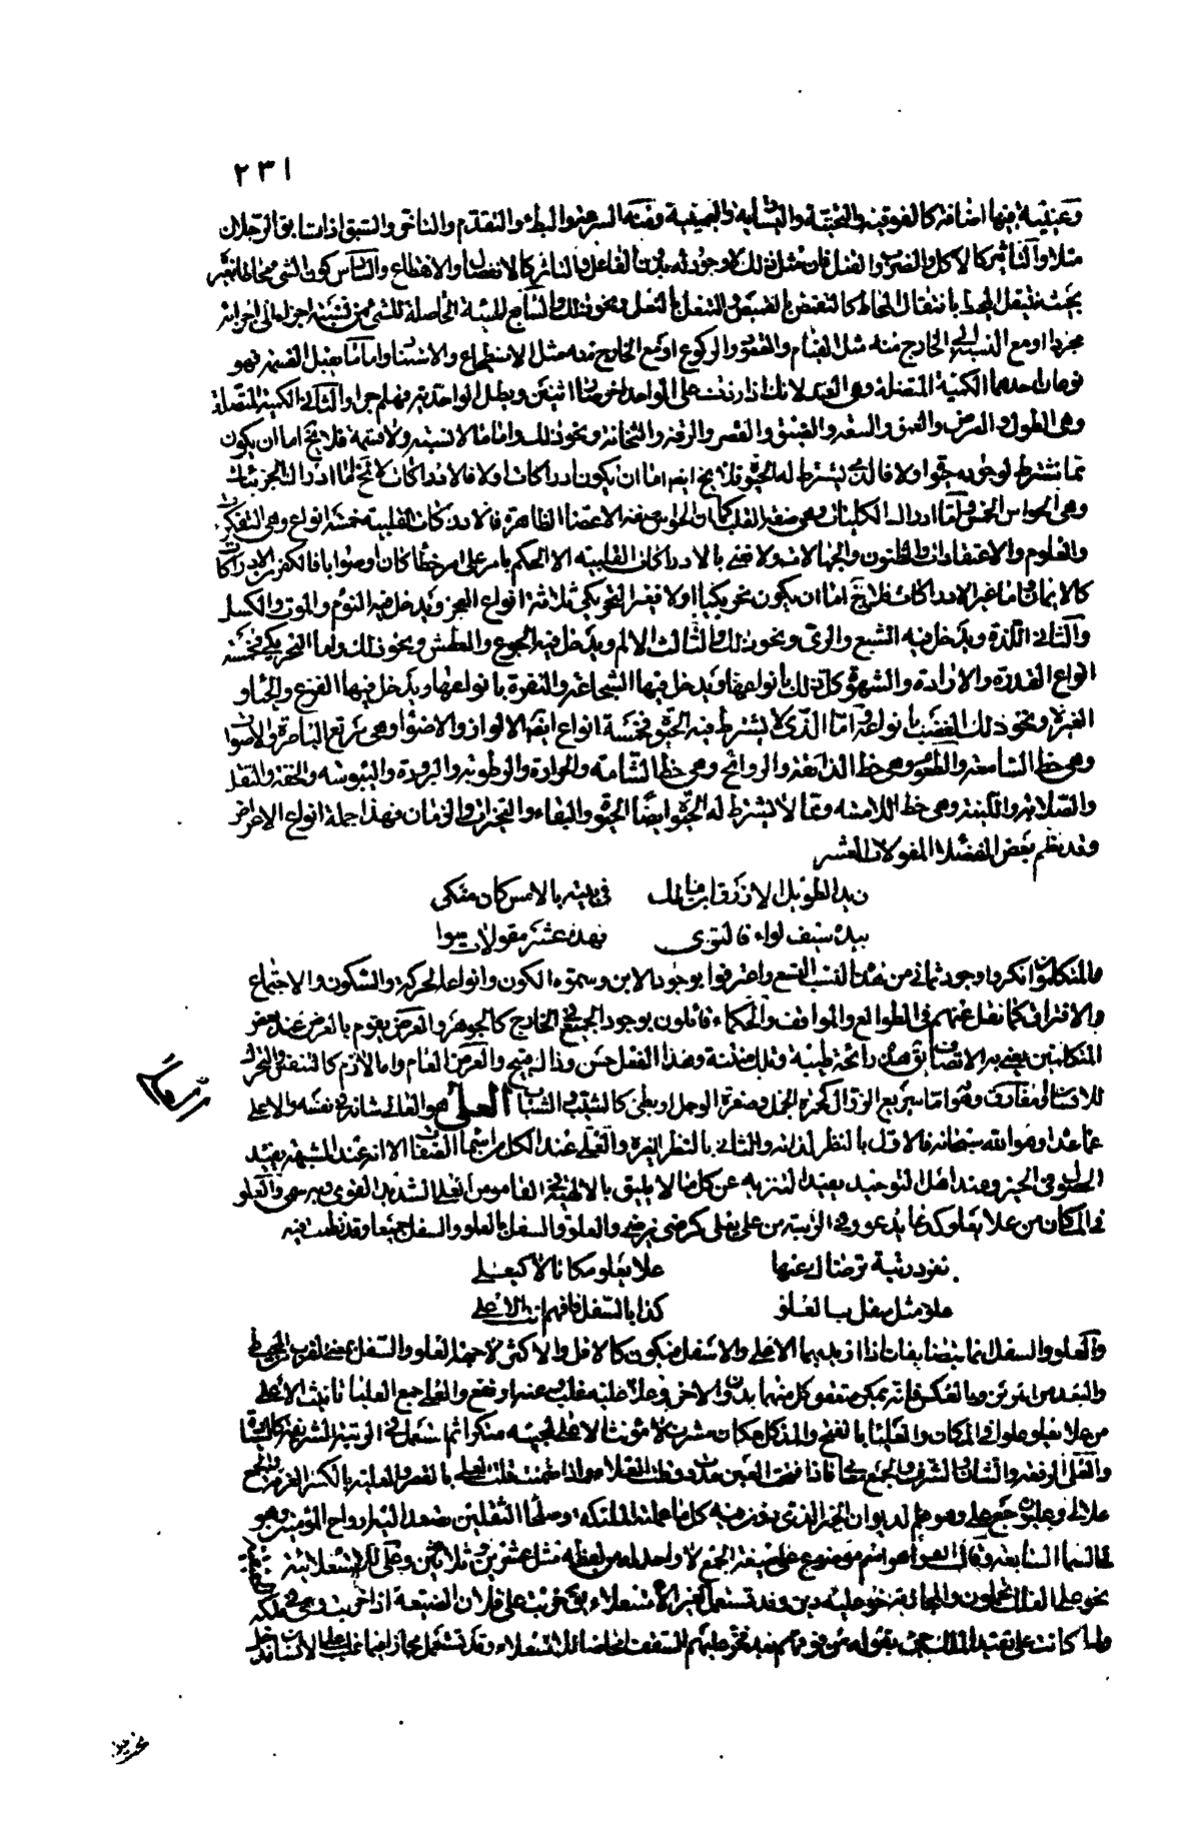 ٢٣١
وعينية منها اضافة كالفوقية والتحتية والبسارية واليمينية ومنه السرعة والبطء والتقدم والتاخر والسبق اذا تسابق الرجلان
مثلا والتاثير كالاكل والضرب والقتل فان مثل ذلك لا وجود له بدون الفاعل والتاثر كالانفصال والانقطاع كون الشئ محاطا بغيره
بحيث ينتقل المحيط بانتقال المحاط كالتقمص بالقميص والتنعل بالنعل ونحو ذلك الهيئة الحاصلة للشئ من نسبة اجزائه الى اجزائه
مجردا او مع النسبة الى الخارج منه مثل القيام والقعود والركوع او مع الخارج منه مثل الاضطجاع والاستناد واما ما يقبل القسمة فهو
نوعان احدهما الكمية المنفصلة وهي العدد لانك اذا زدت على الواحد اخر صارا اثنين وبطل الواحدية فهلم جرا والثاني الكمية المتصلة
وهي الطول والعرض والعمق والسعة والضيق والقصر والرقة والثخانة ونحو ذلك واما ما لا نسبة ولا قسمة فلا يخ اما ان يكون
مما يشترط لوجوده حيوة او لا فالذي يشترط له الحيوة فلا يخ ايضا اما ان يكون ادراكات او لا فالادراكات لا يخ اما ادراك الجزئيات
وهي الحواس الخمس واما ادراك الكليات وهي صفة القلب كما ان الحواس صفة الاعضاء الظاهرة فالادراكات القلبية خمسة انواع وهي التفكرات
والعلوم والاعتقادات والظنون والجهالات ولا نعني بالادراكات القلبية الا الحكم بامر على امر خطأ كان او صوابا فالكفر من الادراكات
كالايمان واما غير الادراكات فلا يخ اما ان يكون تحريكيا او لا فغير التحريكي ثلاثة انواع العجز ويدخل فيه النوم والموت والكسل
والثاني اللذة ويدخل فيه الشبع والري ونحو ذلك والثالث الالم ويدخل فيه الجوع والعطش ونحو ذلك واما التحريكي فخمسة
انواع القدرة والارادة والشهوة كل ذلك بانواعها ويدخل فيها الشجاعة والنفرة بانواعها ويدخل فيها الفزع والحياء و
الغيرة ونحو ذلك الغضب بانواعه واما الذي لا يشترط فيه الحيوة فخمسة انواع ايضا الالوان والاضواء وهي مرتع الباصرة والاصوات
وهي حظ السامعة والطعوم وهي حظ الذائقة والروائح وهي حظ الشامة والحرارة والرطوبة والبرودة واليبوسة والخفة والثقل
والصلابة واللينة وهي حظ اللامسة ومما لا يشترط له الحيوة ايضا الحيوة والبقاء والتحيز والزمان فهذا جملة انواع الاعراض
وقد نظم بعض الفضلاء المقولات العشر
زيد الطويل الازرق ابن مالك في بيته بالامس كان متكي
بيده سيف لواه فالتوى فهذه عشر مقولات سوا
والمتكلمون انكروا وجود ثماني من هذه النسب التسع واعترفوا بوجود الاين وسموه الكون وانواعه الحركة والسكون والاجتماع
والافتراق كما نقل عنهم في الطوالع والمواقف والحكماء قائلون بوجود الجميع في الخارج كالجوهر والعرض يقوم بالعرض عند بعض
المتكلمين يعني به الاتصاف هذه رائحة طيبة وتلك منتنة وهذا الفعل حسن وذاك قبيح والعرض العام واما لازم كالتنفس والتحرك
للانسان او مفارق وهو اما سريع الزوال كحمرة الخجل وصفرة الوجل او بطئ كالشيب والشباب العلي هو العالي شانه في نفسه والاعلى
عما عداه وهو الله سبحانه فالاول بالنظر لذاته والثاني بالنظر لغيره والعلي عند الكل من اسماء الصفات الا انه عند المشبهة يفيد
الحصول في الحيز وعند اهل التوحيد يفيد التنزيه عن كل ما لا يليق بالالهية في القاموس العلي الشديد القوي وبه سمى والعلو
في المكان من علا يعلو كدعا يدعو وفي الرتبة من علي يعلى كرضي يرضى والعلو والسفل بالعلو والسفل جميعا وقد نظمت فيه
تفرد رتبة ترضاك عنها علا يعلو مكانا لا كيعلى
علو مثل سفل بالعلو كذا بالسفل فافهم انت الاعلى
والعلو والسفل انما يتضايفان اذا اريد بهما الاعلى والاسفل فيكون كالاقل والاكثر لا جهة العلو والسفل بمعنى القرب من المحيط
والبعد من المركز وبالعكس فانه يمكن تعقل كل منهما بدون الاخر وعلاه عليه مغلوب عنه ارتفع والعلى جمع العليا تانيث الاعلى
من علا يعلو علوا في المكان والعلياء بالفتح والمد كل مكان مشرف لا مؤنث الاعلى لمجيئه منكرا ثم استعمل في الرتبة الشريفة
والعلى الرفعة والشان والشرف والجمع معالي فاذا فتحت العين مددت وقلت العلاء واذا ضممت قلت العلى بالقصر والعلية بالكسر الغرفة والجمع
علالي وعليون جمع على وهو علم لديوان الخير الذي دون فيه كل ما عملته الملئكة وصلحاء الثقلين تصعد اليه ارواح المؤمنين وهو
في السماء السابعة وقال الفراء هو اسم موضوع على صيغة الجمع لا واحد له من لفظه مثل عشرين وثلاثين وعلى للاستعلاء
نحو على الفلك تحملون والمجازية نحو عليه دين وقد تستعمل لغير الاستعلاء نحو خربت على فلان الضيعة اذا خربت وهي في ملكه
ولما كانت على تفيد الملك حيث بقوله من فوقهم بعد فخر عليهم السقف وقد تستعمل مجازا فيما غلب على الانسان
العلي